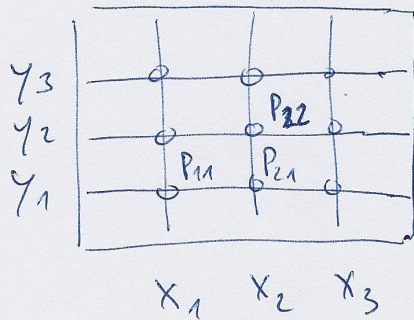 y3
y2 P22
y1 P11 P21
x1 x2 x3